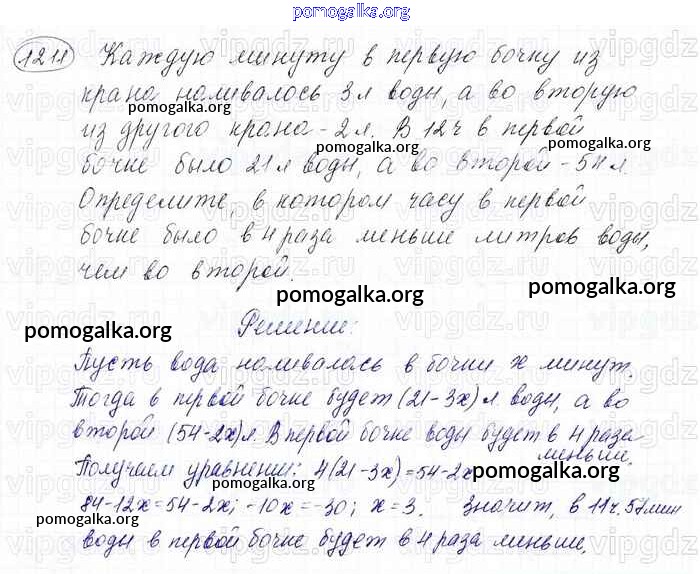 pomogalka.org
1211 Каждую минуту в первую бочку из
крана наливалось 3 л воды, а во вторую
pomogalka.org pomogalka.org
из другого крана - 2 л. В 12 ч в первой
бочке было 21 л воды, а во второй - 54 л.
pomogalka.org
Определите, в котором часу в первой
бочке было в 4 раза меньше литров воды,
чем во второй.
pomogalka.org pomogalka.org
pomogalka.org
Решение:
Пусть вода наливалась в бочки x минут.
Тогда в первой бочке будет (21-3x) л воды, а во
второй (54-2x) л. В первой бочке воды будет в 4 раза
меньше.
Получаем уравнение: 4(21-3x)=54-2x
pomogalka.org
84-12x=54-2x; -10x=-30; x=3. Значит, в 11 ч. 57 мин
pomogalka.org
воды в первой бочке будет в 4 раза меньше.